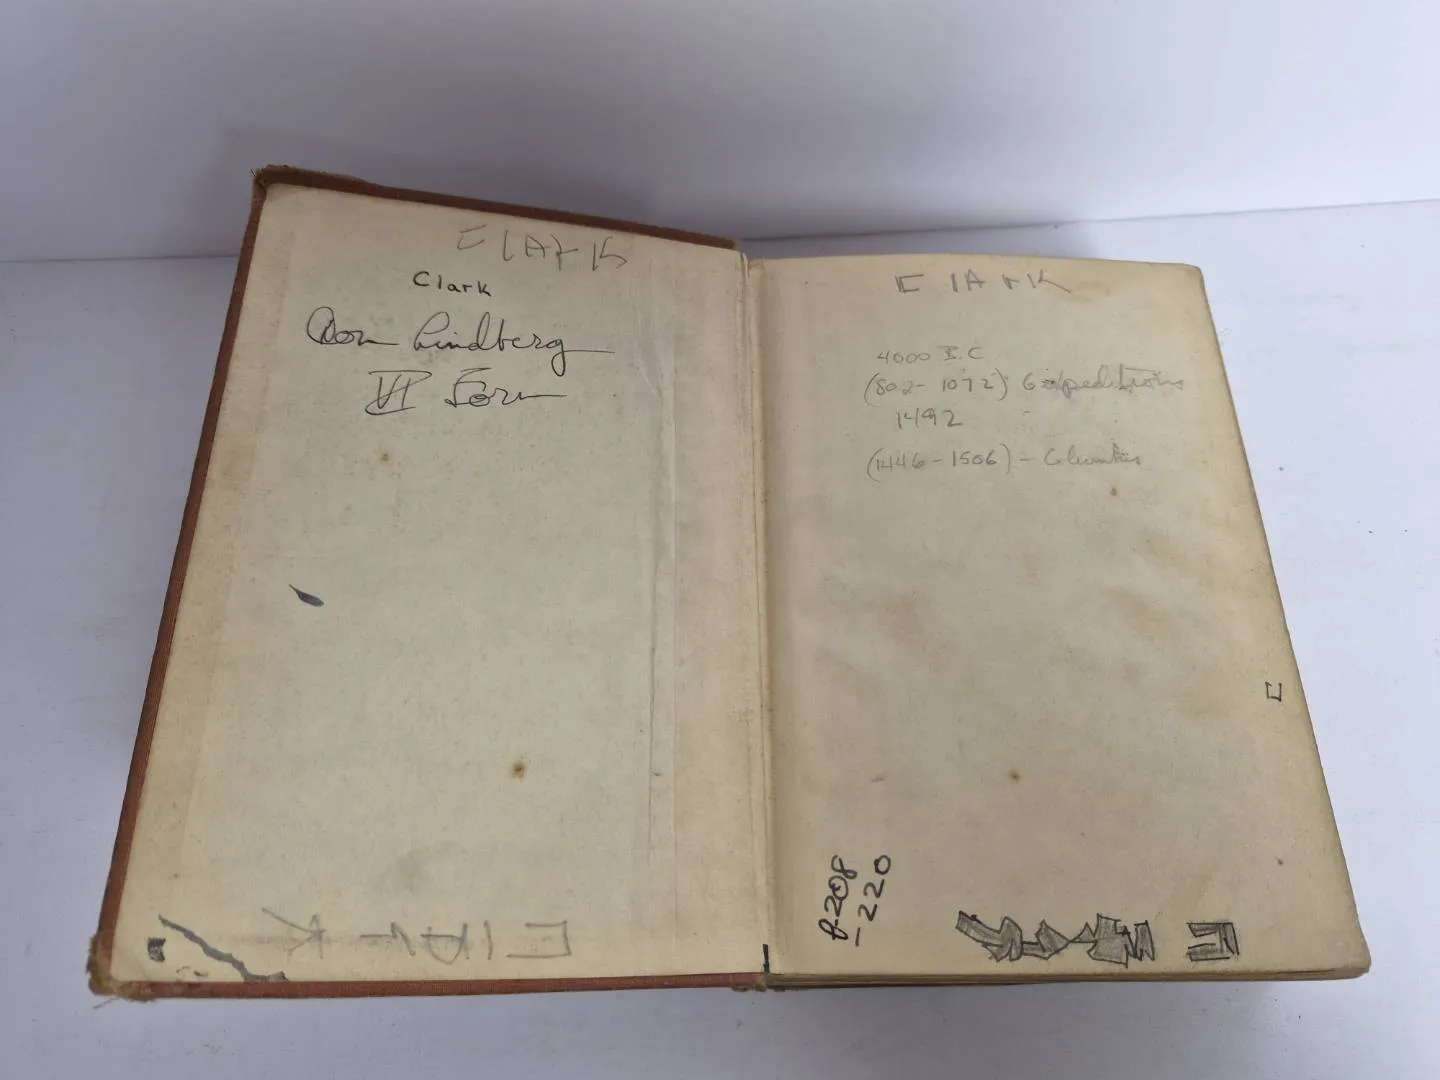 Clark
Clark
Don Lindberg
VI Form
Clark
Clark
4000 B.C
(802-1072) 6 expeditions
1492
(1446-1506) - Columbus
C
P-208
-220